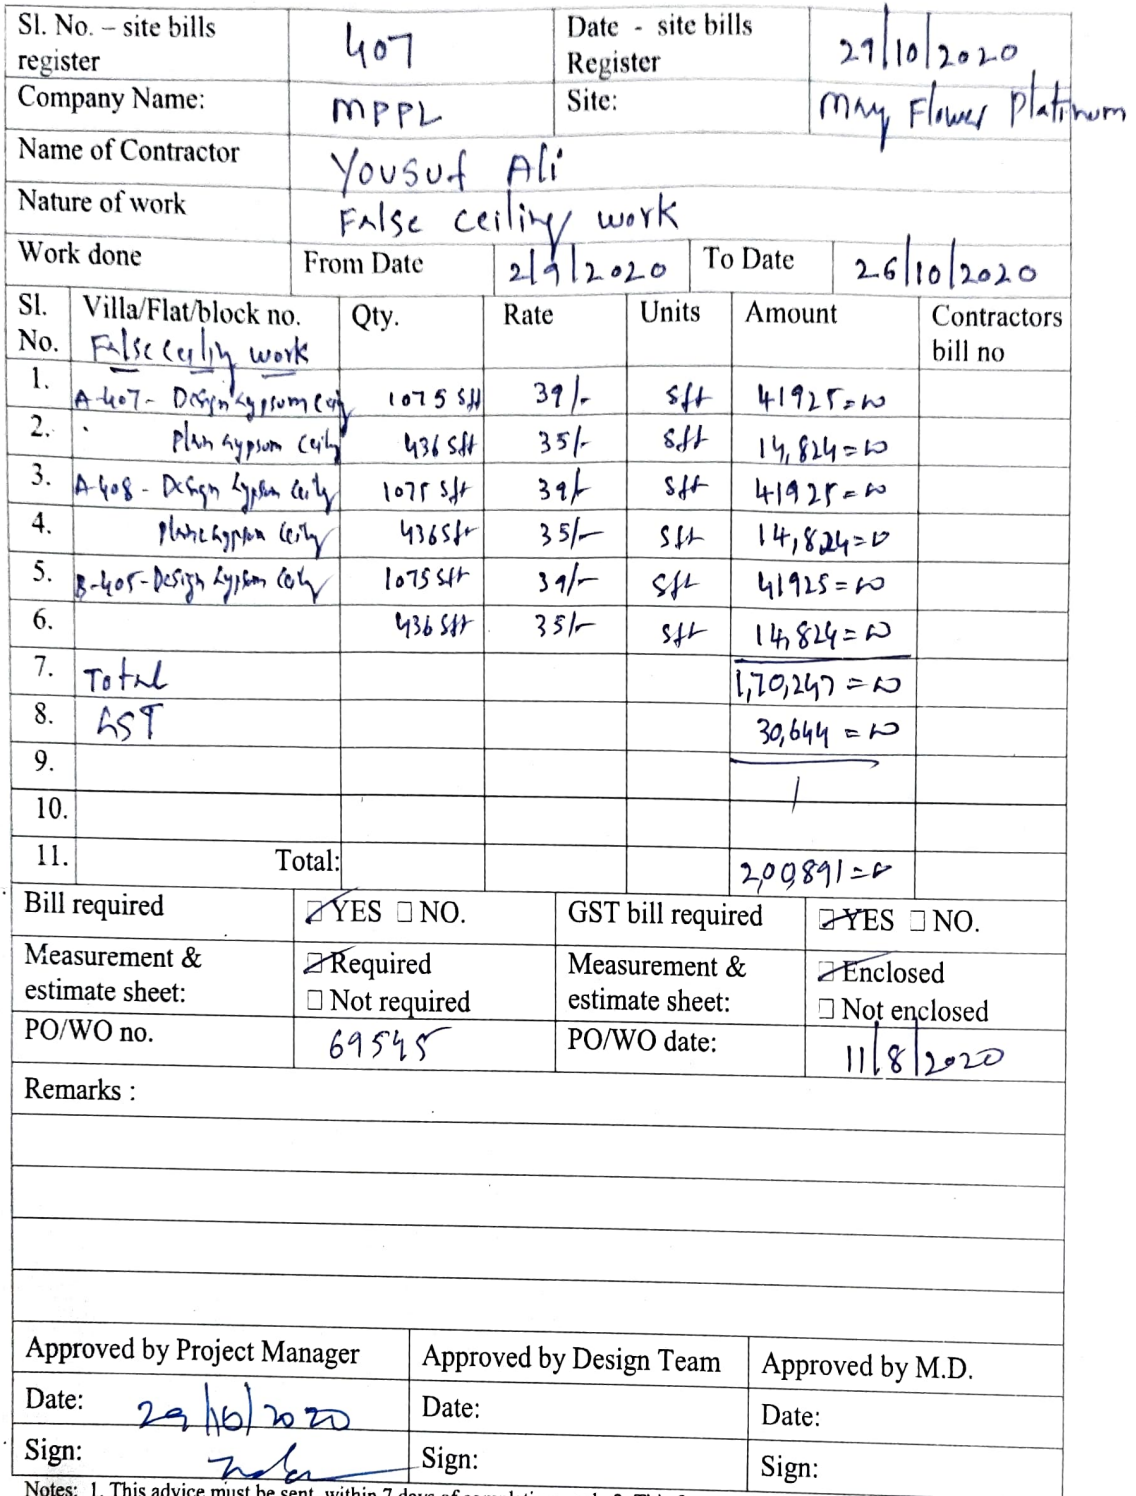 Sl. No. – site bills register 407 Date - site bills Register 29/10/2020
Company Name: MPPL Site: May Flower Platinum
Name of Contractor Yousuf Ali
Nature of work False ceiling work
Work done From Date 2/9/2020 To Date 26/10/2020
Sl. No. Villa/Flat/block no. Qty. Rate Units Amount Contractors bill no
False ceiling work
1. A-407- Design Gypsum Ceilg 1075 sft 39/- sft 41925=00
2. Plan Gypsum Ceilg 436 sft 35/- sft 14,824=00
3. A-408 - Design Gypsum Ceilg 1075 sft 39/- sft 41925=00
4. Plane Gypsum Ceilg 436 sft 35/- sft 14,824=00
5. B-405-Design Gypsum Ceilg 1075 sft 39/- sft 41925=00
6. 436 sft 35/- sft 14,824=00
7. Total 1,70,247=00
8. GST 30,644=00
9.
10.
11. Total: 2,00,891=00
Bill required YES NO. GST bill required YES NO.
Measurement & estimate sheet: Required Not required Measurement & estimate sheet: Enclosed Not enclosed
PO/WO no. 69545 PO/WO date: 11/8/2020
Remarks :
Approved by Project Manager Approved by Design Team Approved by M.D.
Date: 29/10/2020 Date: Date:
Sign: Sign: Sign:
Notes: 1. This advice must be sent within 7 days of